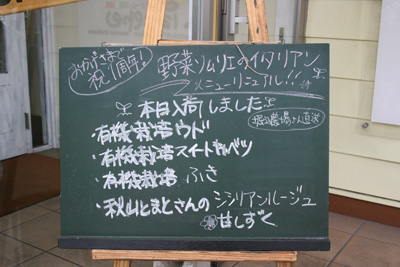 おかげさまで
祝1周年!
野菜ソムリエのイタリアン
メニューリニューアル!!
本日入荷しました
・有機栽培ウド
・有機栽培スイートキャベツ
・有機栽培 ふき
・秋山とまとさんのシシリアンルージュ
甘しずく